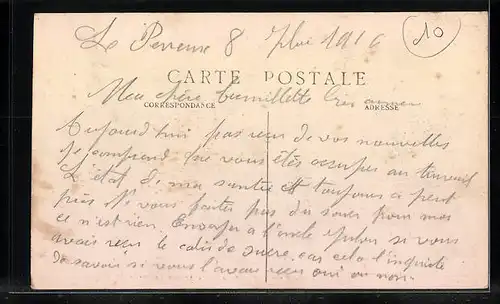 Le Perreux 8 1916
10
CARTE POSTALE
Ma chère famillette
CORRESPONDANCE
ADRESSE
Aujourd'hui pas reçu de vos nouvelles
Je comprend que vous êtes occupés au travail
L'état de ma santé est toujours a peut
près Ne vous faites pas du souci pour moi
ce n'est rien. Envoyer a l'oncle si vous
avais reçu le colis de sucre car cela l'inquiète
de savoir si vous l'avais reçu oui ou non.